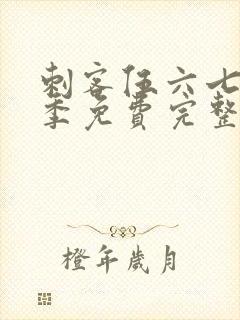 刺客伍六七
季免費完整
橙年歲月